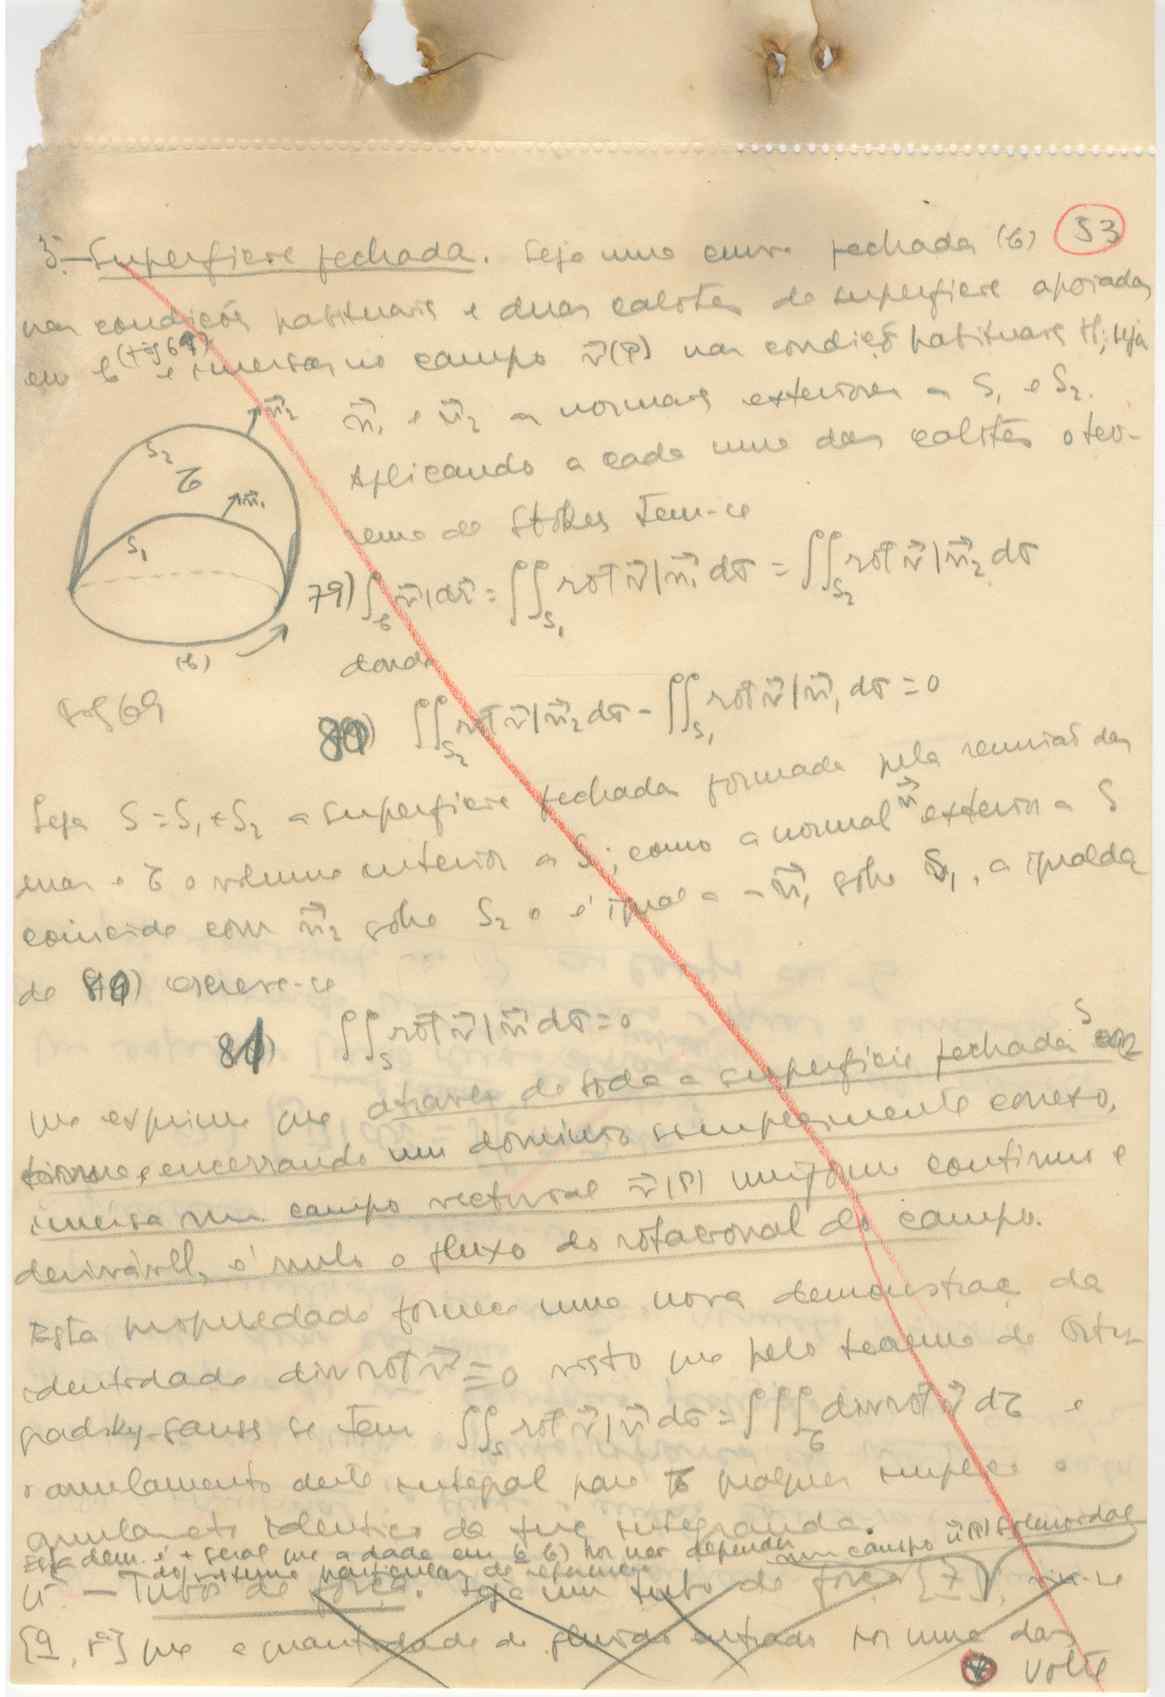 53
3º — Superficie fechada. Seja uma curva fechada (C)
nas condições habituais e duas calotas de superficie apoiadas
em C (fig 69) e imersas no campo v⃗(P) nas condições habituais; seja
n⃗₁ e n⃗₂ as normais exteriores a S₁ e S₂.
Aplicando a cada uma das calotas o teo-
rema de Stokes tem-se
79) ∫_C v⃗|dτ⃗ = ∬_S₁ rot v⃗|n⃗₁ dσ = ∬_S₂ rot v⃗|n⃗₂ dσ
donde
S₂
τ
n⃗₂
n⃗₁
S₁
(C)
fig 69
80) ∬_S₂ rot v⃗|n⃗₂ dσ - ∬_S₁ rot v⃗|n⃗₁ dσ = 0
Seja S = S₁ + S₂ a superficie fechada formada pela reunião das
duas e τ o volume interior a S; como a normal n⃗ exterior a S
coincide com n⃗₂ sobre S₂ e é igual a -n⃗₁ sobre S₁, a igualda
de 80) escreve-se
81) ∬_S rot v⃗|n⃗ dσ = 0
que exprime que através de toda a superficie fechada S
encerrando um dominio simplesmente conexo,
imersa num campo vectorial v⃗(P) uniforme continuo e
derivável, é nulo o fluxo do rotacional do campo.
Esta propriedade fornece uma nova demonstraç. da
identidade div rot v⃗ ≡ 0 visto que pelo teorema de Ostro
gradsky-Gauss se tem ∬_S rot v⃗|n⃗ dσ = ∭_τ div rot v⃗ dτ e
o anulamento deste integral para τ qualquer implica o
anulamento identico da funç integranda.
Esta dem. é + geral que a dada em 6) por não depender
do sistema particular de referencia
num campo v⃗(P) solenoidal
4º — Tubos de força. Seja um tubo de força [7], -se
[9, ] que a quantidade de fluido entrado por uma das
volte